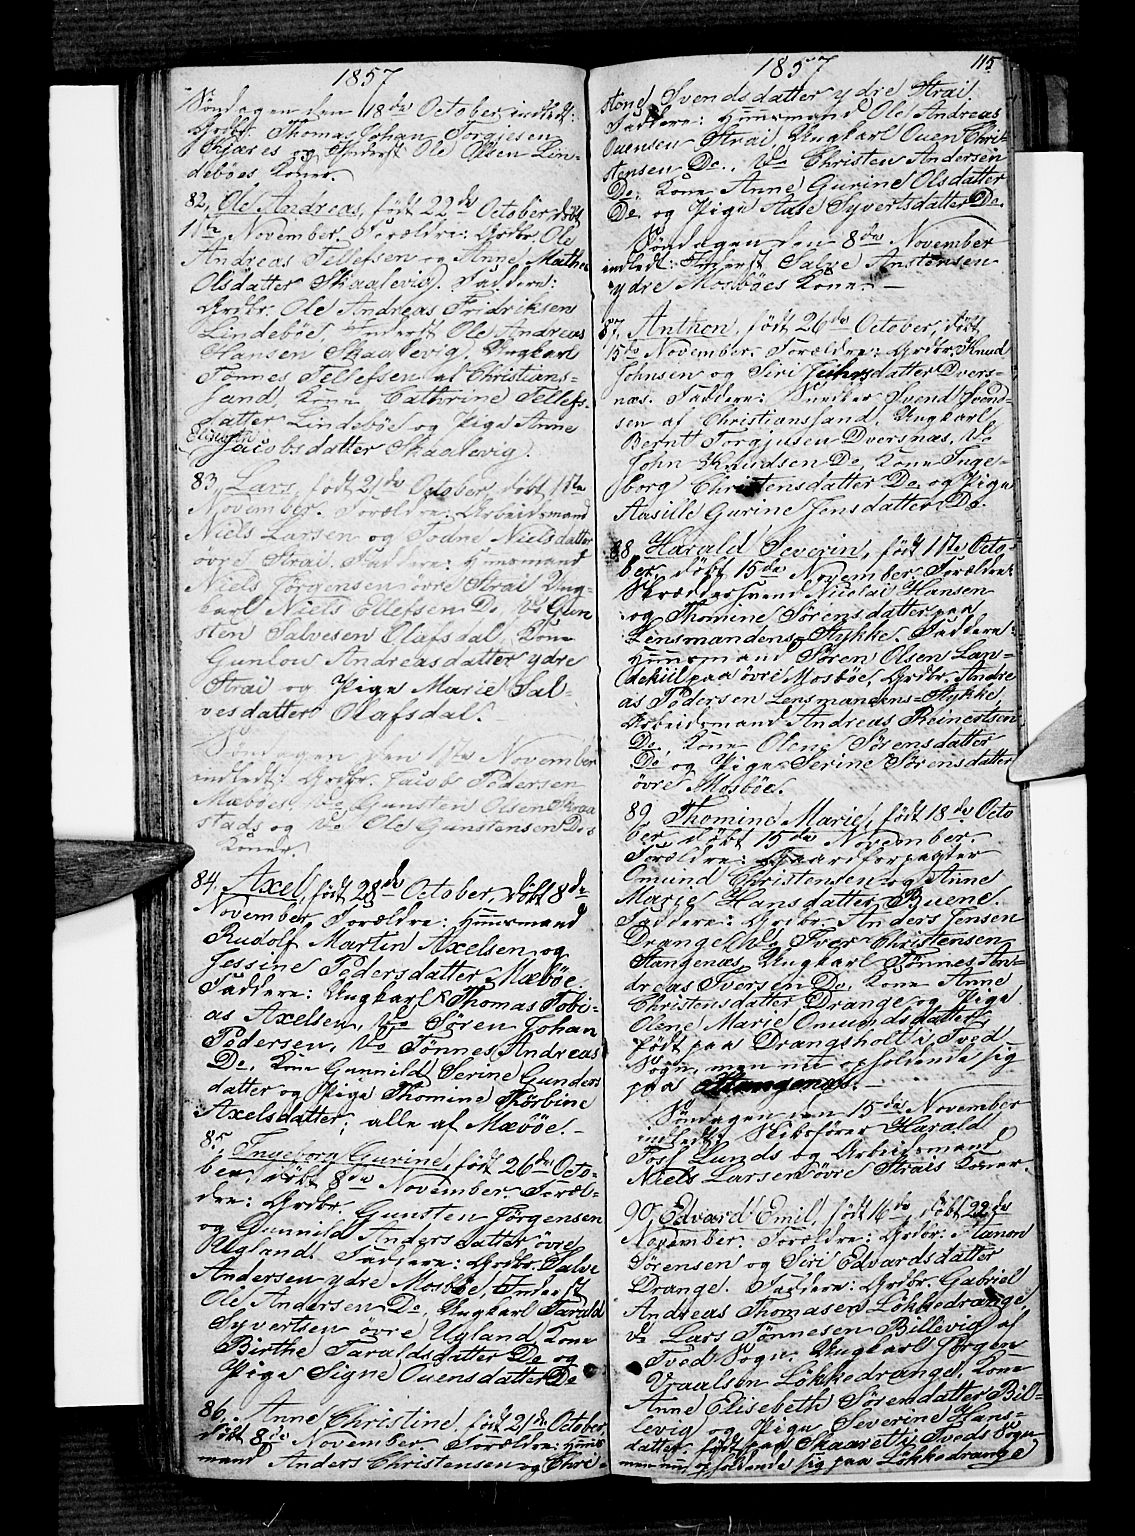 1857
Søndagen den 18de October indledt:
Grdbr. Thomas Johan Torgjesen
Kjæres og Inderst Ole Olsen Lin-
debøes Koner.
82, Ole Andreas, født 22de October, døbt
1ste November. Forældre: Grdbr. Ole
Andreas Tellefsen og Anne Mathea
Olsdatter Skaalevig. Faddere:
Grdbr. Ole Andreas Fridriksen
Lindebøe Inderst Ole Andreas
Hansen Skaalevig, Ungkarl
Tønnes Tellefsen af Christians-
sand, Kone Cathrine Tellefs-
datter Lindebøe og Pige Anne
Elisabeth
Jacobsdatter Skaalevig.
83, Lars, født 21de October, døbt 1ste
November. Forældre: Arbeidsmand
Niels Larsen og Todne Nielsdatter
øvre Strai. Faddere: Huusmand
Niels Jørgensen øvre Strai Ung-
karl Niels Ellefsen Do, Do Gun
sten Salvesen Olafsdal, Kone
Gunlou Andreasdatter ydre
Strai og Pige Marie Sal-
vesdatter Olafsdal.
Søndagen den 1ste November
indledt: Grdbr. Jacob Pedersen
Mæbøes, Do Gunsten Olsen Kraa
stads og Do Ole Gunstensen Dos
Koner.
84, Axel, født 28de October, døbt 8de
November. Forældre: Huusmand
Rudolf Martin Axelsen og
Jessine Pedersdatter Mæbøe.
Faddere: Ungkarl Thomas Tobi-
as Axelsen, Do Søren Johan
Pedersen, Do Tønnes Andreas
Do, Kone Gunnild Serine Gunders
datter og Pige Thomine Thorbine
Axelsdatter; alle af Mæbøe.
85, Ingeborg Gurine, født 26de Octo-
ber, døbt 8de November. Foræl-
dre: Grdbr. Gunsten Jørgensen
og Gunnild Andersdatter øvre
Ugland. Faddere: Grdbr. Salve
Andersen ydre Mosbøe, Inderst
Ole Andersen Do, Ungkarl Tarald
Syvertsen øvre Ugland, Kone
Birthe Taraldsdatter Do og
Pige Signe Ouensdatter Do
86, Anne Christine, født 21de October,
døbt 8de November. Forældre: Huus
mand Anders Christensen og Chri-
1857
115
stene Svendsdatter ydre Strai.
Faddere: Huusmand Ole Andreas
Ouensen Strai Ungkarl Ouen Chri-
stensen Do, Do Christen Andersen
Do, Kone Anne Gurine Olsdatter
Do, og Pige Aase Syvertsdatter Do.
Søndagen den 8de November
indledt: Inderst Salve Anstensen
ydre Mosbøes Kone.
87, Anthon, født 26de October, døbt
15de November. Forældre: Grdbr. Knud
Johnsen og Siri datter Dvers-
næs. Faddere: Snedker Svend Svend-
sen af Christianssand, Ungkarl
Bernt Torgjusen Dversnæs, Do
John Knudsen Do, Kone Inge-
borg Christensdatter Do og Pige
Aasille Gurine Jensdatter Do.
88, Harald Severin, født 11te Octo-
ber, døbt 15de November. Forældre:
Skræddersvend Nicolai Hansen
og Thomine Sørensdatter paa
Lensmandens-Stykke. Faddere:
Huusmand Søren Olsen Lan-
dekiil paa øvre Mosbøe, Grdbr. Andre
as Pedersen Lensmandens-Stykke,
Arbeidsmand Andreas Reinertsen
Do, Kone Olene Sørensdatter
Do og Pige Serine Sørensdatter
øvre Mosbøe.
89, Thomine Marie, født 18de Octo
ber døbt 15de November.
Forældre: Gaardforpagter
Omund Christensen og Anne
Marie Hansdatter Buene.
Faddere: Grdbr. Anders Jensen
Drange, Do Iver Christensen
Stangenæs, Ungkarl Tønnes An-
dreas Iversen Do, Kone Anne
Christensdatter Drange og Pige
Olene Marie Omundsdatter,
født paa Drangsholt i Tved
Sogn, men nu opholdende sig
paa Stangenæs.
Søndagen den 15de November
indledt: Skibsfører Harald
Lunds og Arbeidsmand
Niels Larsen øvre Strais Koner.
90, Edvard Emil, født 16de, døbt 22de
November. Forældre: Grdbr. Aanon
Sørensen og Siri Edvardsdatter
Drange. Faddere: Grdbr. Gabriel
Andreas Thomasen Løkkedrange,
Do Lars Tønnesen Billevig af
Tved Sogn. Ungkarl Jørgen
Vraalsen Løkkedrange, Kone
Anne Elisebeth Sørensdatter Bil-
levig og Pige Severine Hans-
datter, født paa Skaaret i Tveds Sogn
men nu opholdende sig paa Løkkedrange